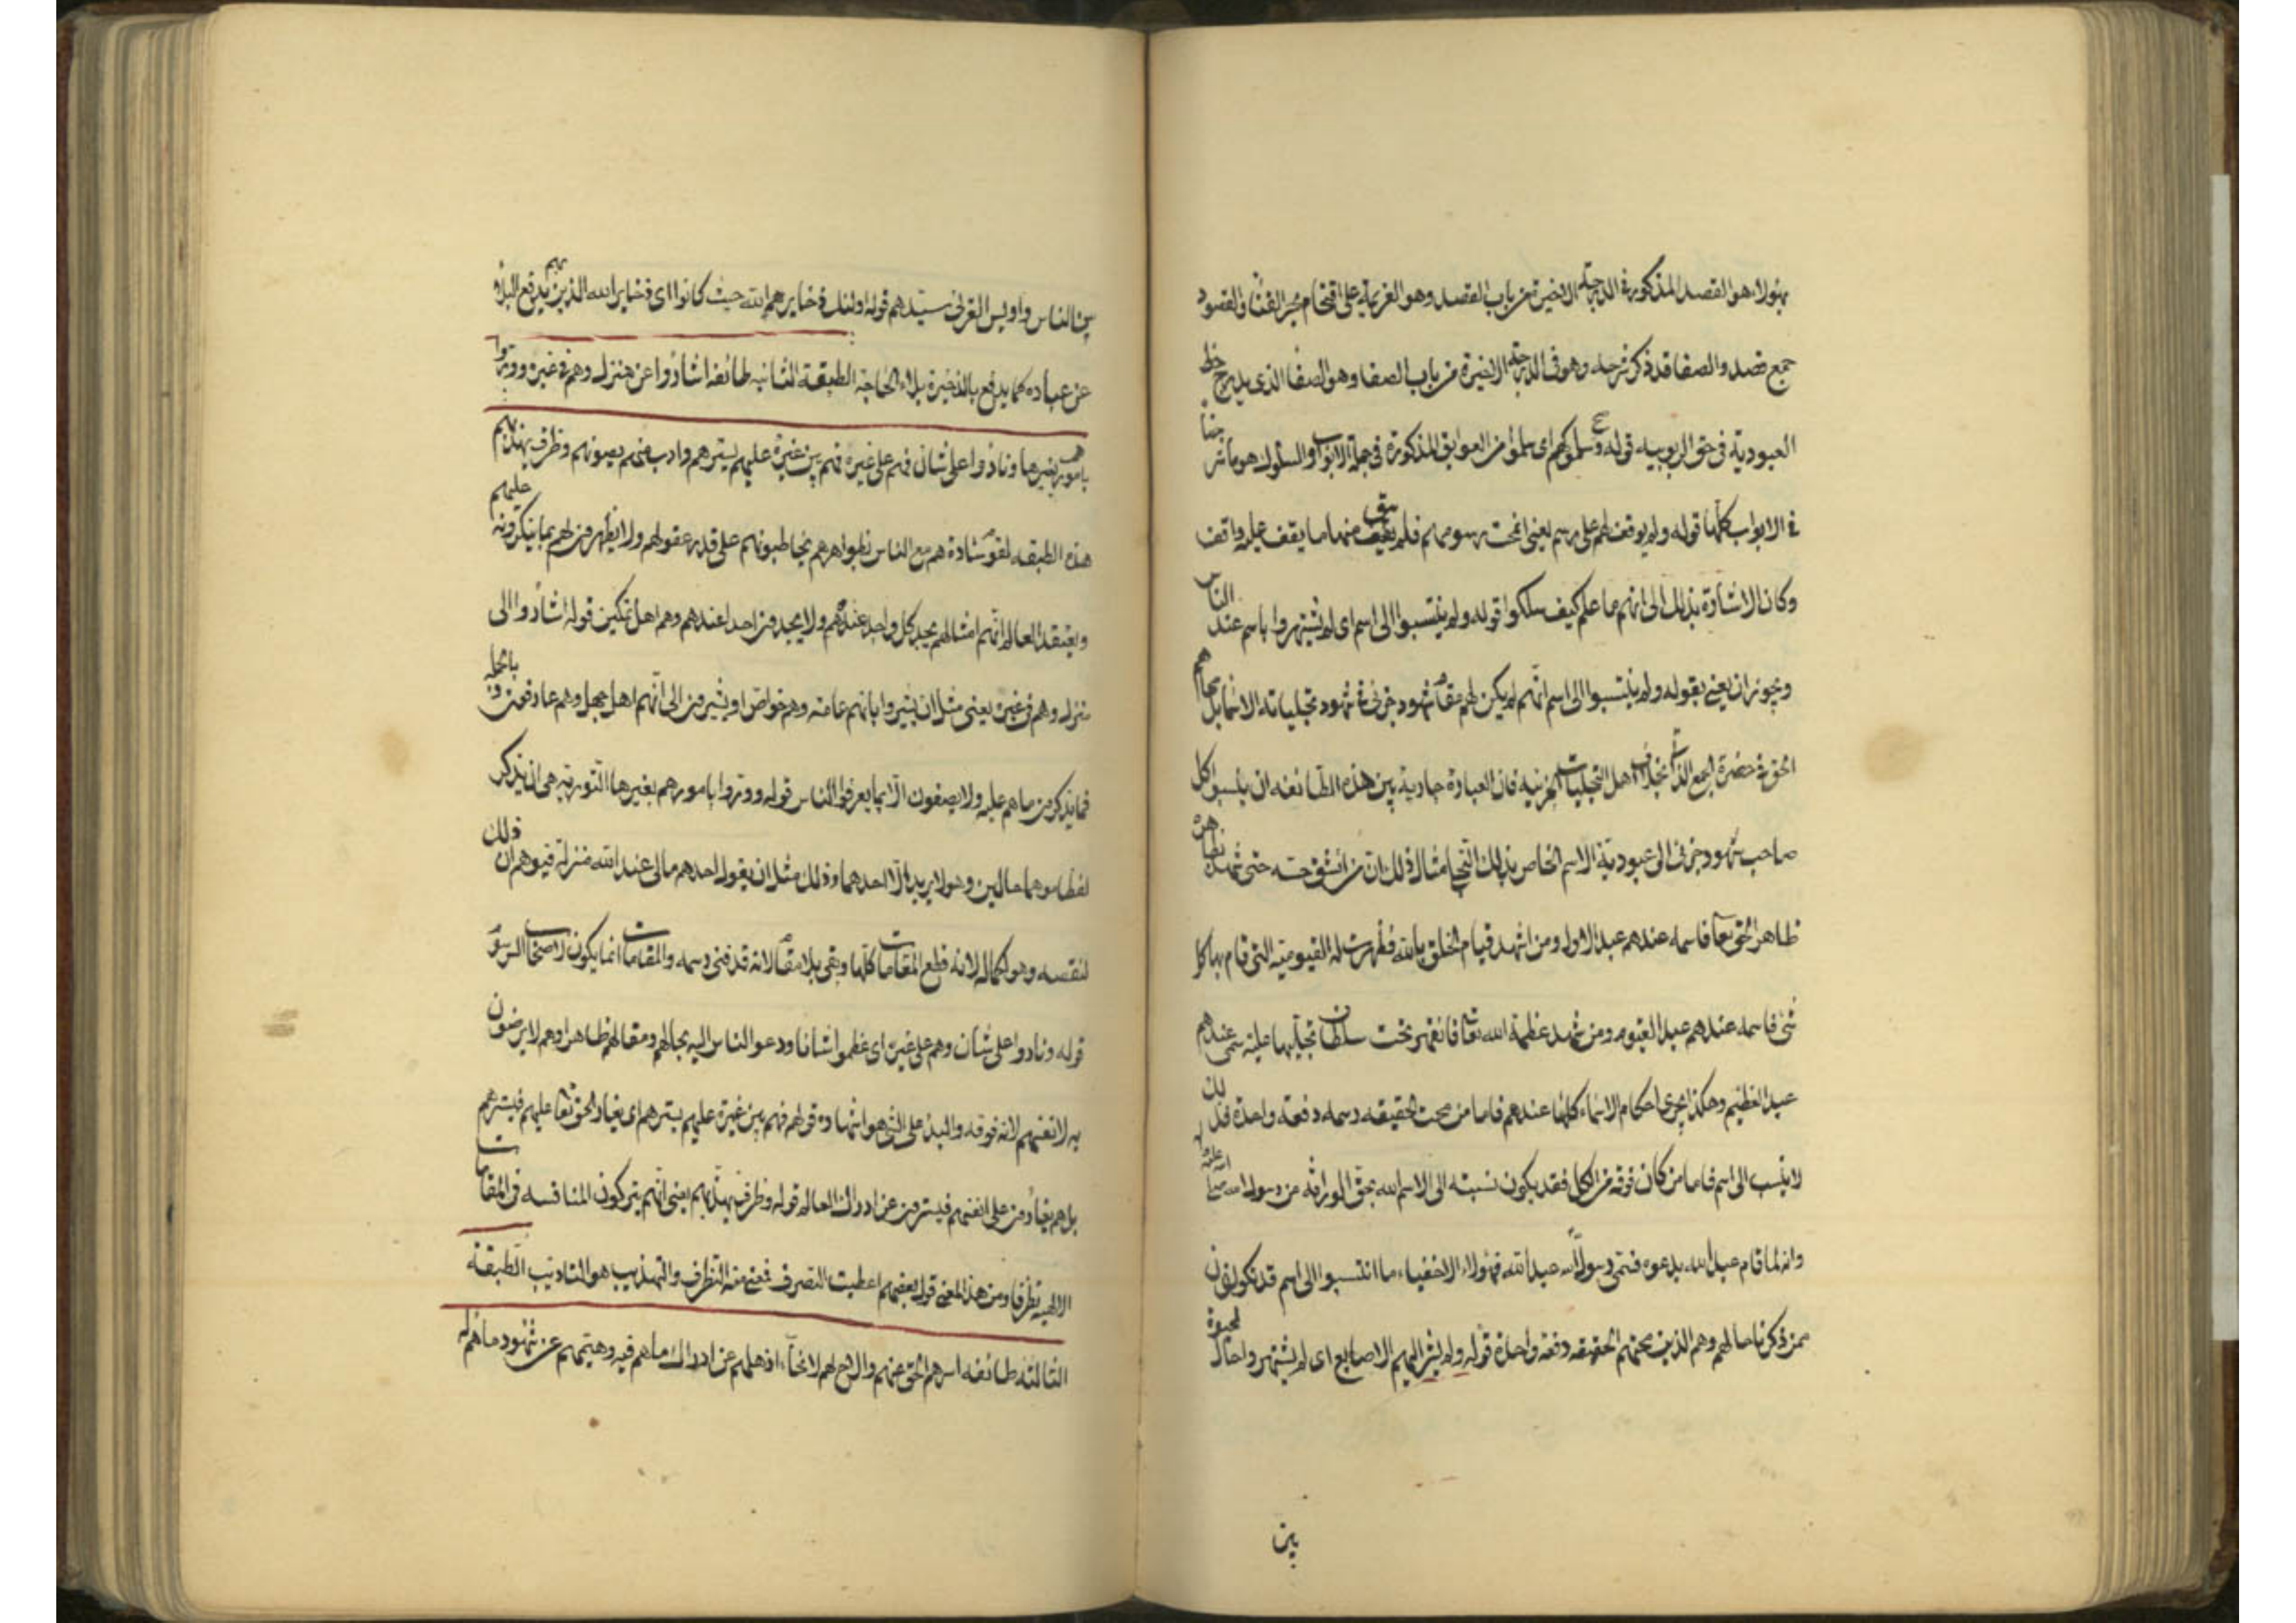 بهؤلاء هو القصد المذكور فى الدرجة الاخيرة من باب القصد وهو العزيمة على اقتحام بحر الفناء والقصود
جمع قصد والصفا قد ذكر شرحه وهو فى الدرجة الاخيرة من باب الصفا وهو الصفا الذى يدرج حظ
العبودية فى حق الربوبية قوله وسلوكهم اى سلموا من العوايق المذكورة فى جملة الابواب والسلوك هو ما مر
فى الابواب كلها قوله ولم يوقف لهم على رسم يعنى انمحت رسومهم فلم يبق منها ما يقف عليه واقف
وكان الاشارة بذلك الى انهم ما علم كيف سلكوا قوله ولم ينتسبوا الى اسم اى لم يشتهروا باسم عند الناس
ويجوز ان يعنى بقوله ولم ينتسبوا الى اسم انهم لم يكن لهم مقام شهود جزئى فى شهود تجلياته الاسمائية بل محاهم
الحق فى حضرة الجمع الذاتى بخلاف اهل التجليات الجزئية فان العبارة جارية بين هذه الطائفة ان ينسبوا كل
صاحب شهود جزئى الى عبودية الاسم الخاص بذلك التجلى مثال ذلك ان من انشق حسه حتى شهد
ظاهر الحق تعالى فاسمه عندهم عبد الاول ومن اشهد قيام الخلق بالله فظهرت له القيومية التى قام بها كل
شئ فاسمه عندهم عبد القيوم ومن شهد عظمة الله تعالى فانقهر تحت سلطان تجليها عليه سمى عندهم
عبد العظيم وهكذا يجرى احكام الاسماء كلها عندهم فاما من محت الحقيقة رسمه دفعة واحدة فذلك
لا ينسب الى اسم فاما من كان فوقه من الكل فقد يكون نسبته الى الاسم الله بحق الوراثة من رسول الله صلى الله عليه
وانه لما قام عبد الله يدعوه فسمى رسول الله عبد الله فهؤلاء الاخفياء ما انتسبوا الى اسم قد يكونون
ممن ذكرنا حالهم وهم الذين محتهم الحقيقة دفعة واحدة قوله ولم يشر اليهم الاصابع اى لم يشتهروا حال
بين
بين الناس واويس القرنى سيدهم قوله اولئك ذخاير هم الله حيث كانوا اى ذخاير الله الذين يدفع بهم البلاء
عن عباده كما يدفع بالذخيرة بلاء الحاجة الطبقة الثانية طائفة اشاروا عن منزل وهم فى غيره ووروا
بامور هم بغيرها ونادوا على شان وهم على غيره فهم بين غيرة عليهم يسترهم وادب فيهم يصونهم وظرف يهذبهم
هذه الطبقة لقوم سادة هم مع الناس بظواهرهم يخاطبونهم على قدر عقولهم ولا يظهرون لهم بما ينكرونه عليهم
ويعتقد العالم انهم امثالهم يجد كل واحد عندهم ولا يجدون احدا عندهم وهم اهل تمكين قوله اشاروا الى
منزل وهم فى غيره يعنى مثل ان يشيروا بانهم عامة وهم خواص او يشيرون الى انهم اهل جهل وهم عارفون وبالجملة
فما يذكرون ما هم عليه ولا يصفون الا بما يعرفه الناس قوله ووروا بامورهم بغيرها التورية هى ان يذكر
لفظا موهما حالين وهو لا يريد الا احدهما وذلك مثل ان يقول احدهم مالى عند الله منزلة فيوهم ان ذلك
لنقصه وهو لكماله لانه قطع المقامات كلها وبقى بلا مقام لانه قد فنى رسمه والمقامات انما يكون لاصحاب الرسوم
قوله ونادوا على شان وهم على غيره اى عظموا شانا ودعوا الناس اليه بحالهم ومقالهم ظاهرا وهم لا يرضون
به لانفسهم لانه فوقه والنداء على الشئ هو اشهاره قولهم فهم بين غيرة عليهم يسترهم اى يغار الحق تعالى عليهم فيسترهم
بل هم يغارون على انفسهم فيسترون عن ادراك العالم قوله وظرف يهذبهم يعنى انهم يتركون المنافسة فى المقامات
الالهية تظرفا ومن هذا المعنى قول بعضهم اعطيت التصرف فعفته التظرف والتهذيب هو التاديب الطبقة
الثالثة طائفة اسرهم الحق عنهم والاح لهم لايحا اذهلهم عن ادراك ما هم فيه وهيمهم عن شهود ما هم له